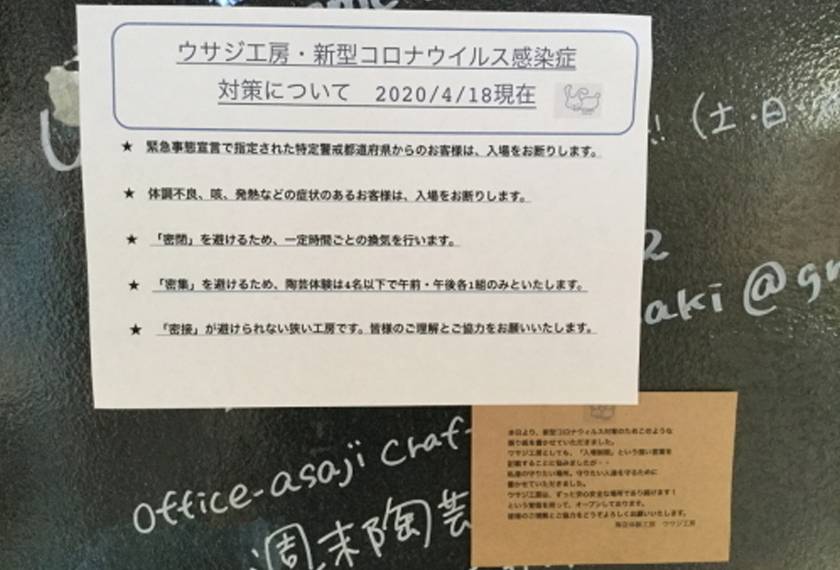 ウサジ工房・新型コロナウイルス感染症
対策について 2020/4/18現在
!! (土・日
★ 緊急事態宣言で指定された特定警戒都道府県からのお客様は、入場をお断りします。
★ 体調不良、咳、発熱などの症状のあるお客様は、入場をお断りします。
★ 「密閉」を避けるため、一定時間ごとの換気を行います。
★ 「密集」を避けるため、陶芸体験は4名以下で午前・午後各1組のみといたします。
★ 「密接」が避けられない狭い工房です。皆様のご理解とご協力をお願いいたします。
2
aki @gm
office-asaji craf
週末陶芸
本日より、新型コロナウィルス対策のためこのような
張り紙を書かせていただきました。
ウサジ工房としても、「入場制限」という強い言葉を
記載することに悩みましたが・・
私達の守りたい場所、守りたい人達を守るために
書かせていただきました。
ウサジ工房は、ずっと安心安全な場所であり続けます！
という覚悟を持って、オープンしております。
皆様のご理解とご協力をどうぞよろしくお願いいたします。
陶芸体験工房 ウサジ工房